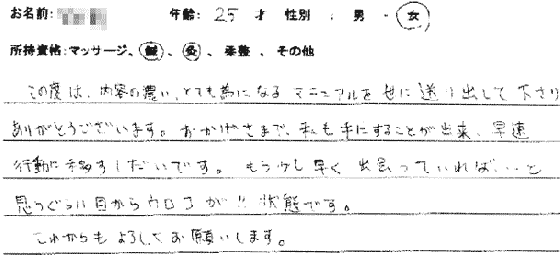 お名前: 年齢: 25 才 性別 : 男 ・ 女
所持資格:マッサージ、鍼、灸、柔整、その他
この度は、内容の濃い、とても為になるマニュアルを世に送り出して下さり
ありがとうございます。おかげさまで、私も手にすることが出来、早速
行動に移すしだいです。もう少し早く出会っていれば...と
思うぐらい目からウロコが!!状態です。
これからもよろしくお願いします。